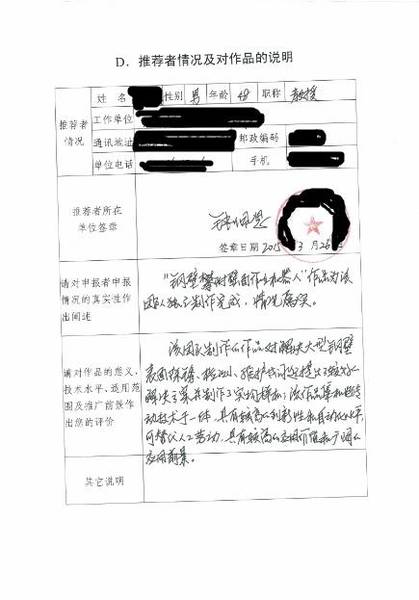 D. 推荐者情况及对作品的说明
推荐者情况 姓名 性别 男 年龄 48 职称 教授
工作单位
通讯地址 邮政编码
单位电话 手机
推荐者所在单位签章
签章日期 2015 3月26
请对申报者申报情况的真实性作出阐述
"钢壁攀附壁面作业机器人"作品为该
团队独立制作完成，情况属实。
请对作品的意义、技术水平、适用范围及推广前景作出您的评价
该团队制作的作品对解决大型钢壁
表面探测、检测、维护
解决方案并制作了实物样机；该作品集
动技术于一体，具有较高的创新性和自动化水平，
可替代人工劳动，具有较高的应用价值和广阔的
应用前景。
其它说明